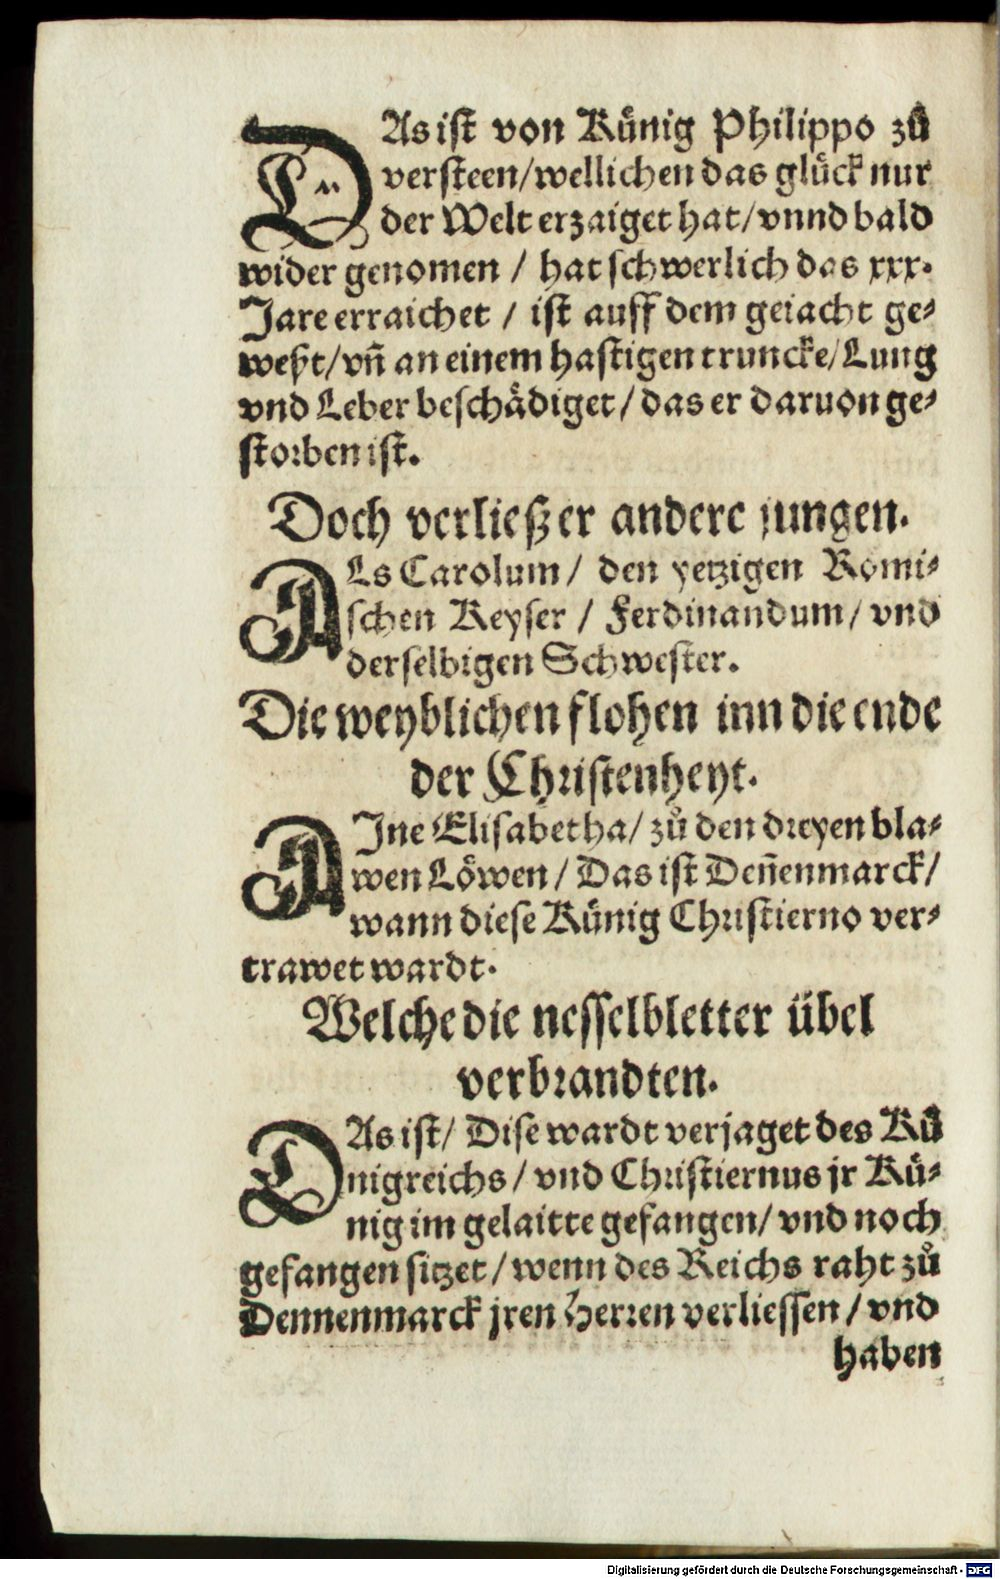 DAs ist von Künig Philippo zů
versteen/wellichen das glück nur
der Welt erzaiget hat/vnnd bald
wider genomen / hat schwerlich das xxx.
Jare erraichet / ist auff dem geiacht ge⸗
weßt/vñ an einem hastigen truncke/Lung
vnd Leber beschädiget/das er daruon ge⸗
storben ist.
Doch verließ er andere jungen.
ALs Carolum/ den yetzigen Romi⸗
schen Keyser / Ferdinandum/ vnd
derselbigen Schwester.
Die weyblichen flohen inn die ende
der Christenheyt.
AJne Elisabetha/ zů den dreyen bla⸗
wen Löwen / Das ist Deñenmarck/
wann diese Künig Christierno ver⸗
trawet wardt.
Welche die nesselbletter übel
verbrandten.
DAs ist/ Dise wardt verjaget des Kü
nigreichs / vnd Christiernus jr Kü⸗
nig im gelaitte gefangen/ vnd noch
gefangen sitzet / wenn des Reichs raht zů
Dennenmarck jren Herren verliessen / vnd
haben
Digitalisierung gefördert durch die Deutsche Forschungsgemeinschaft - DFG